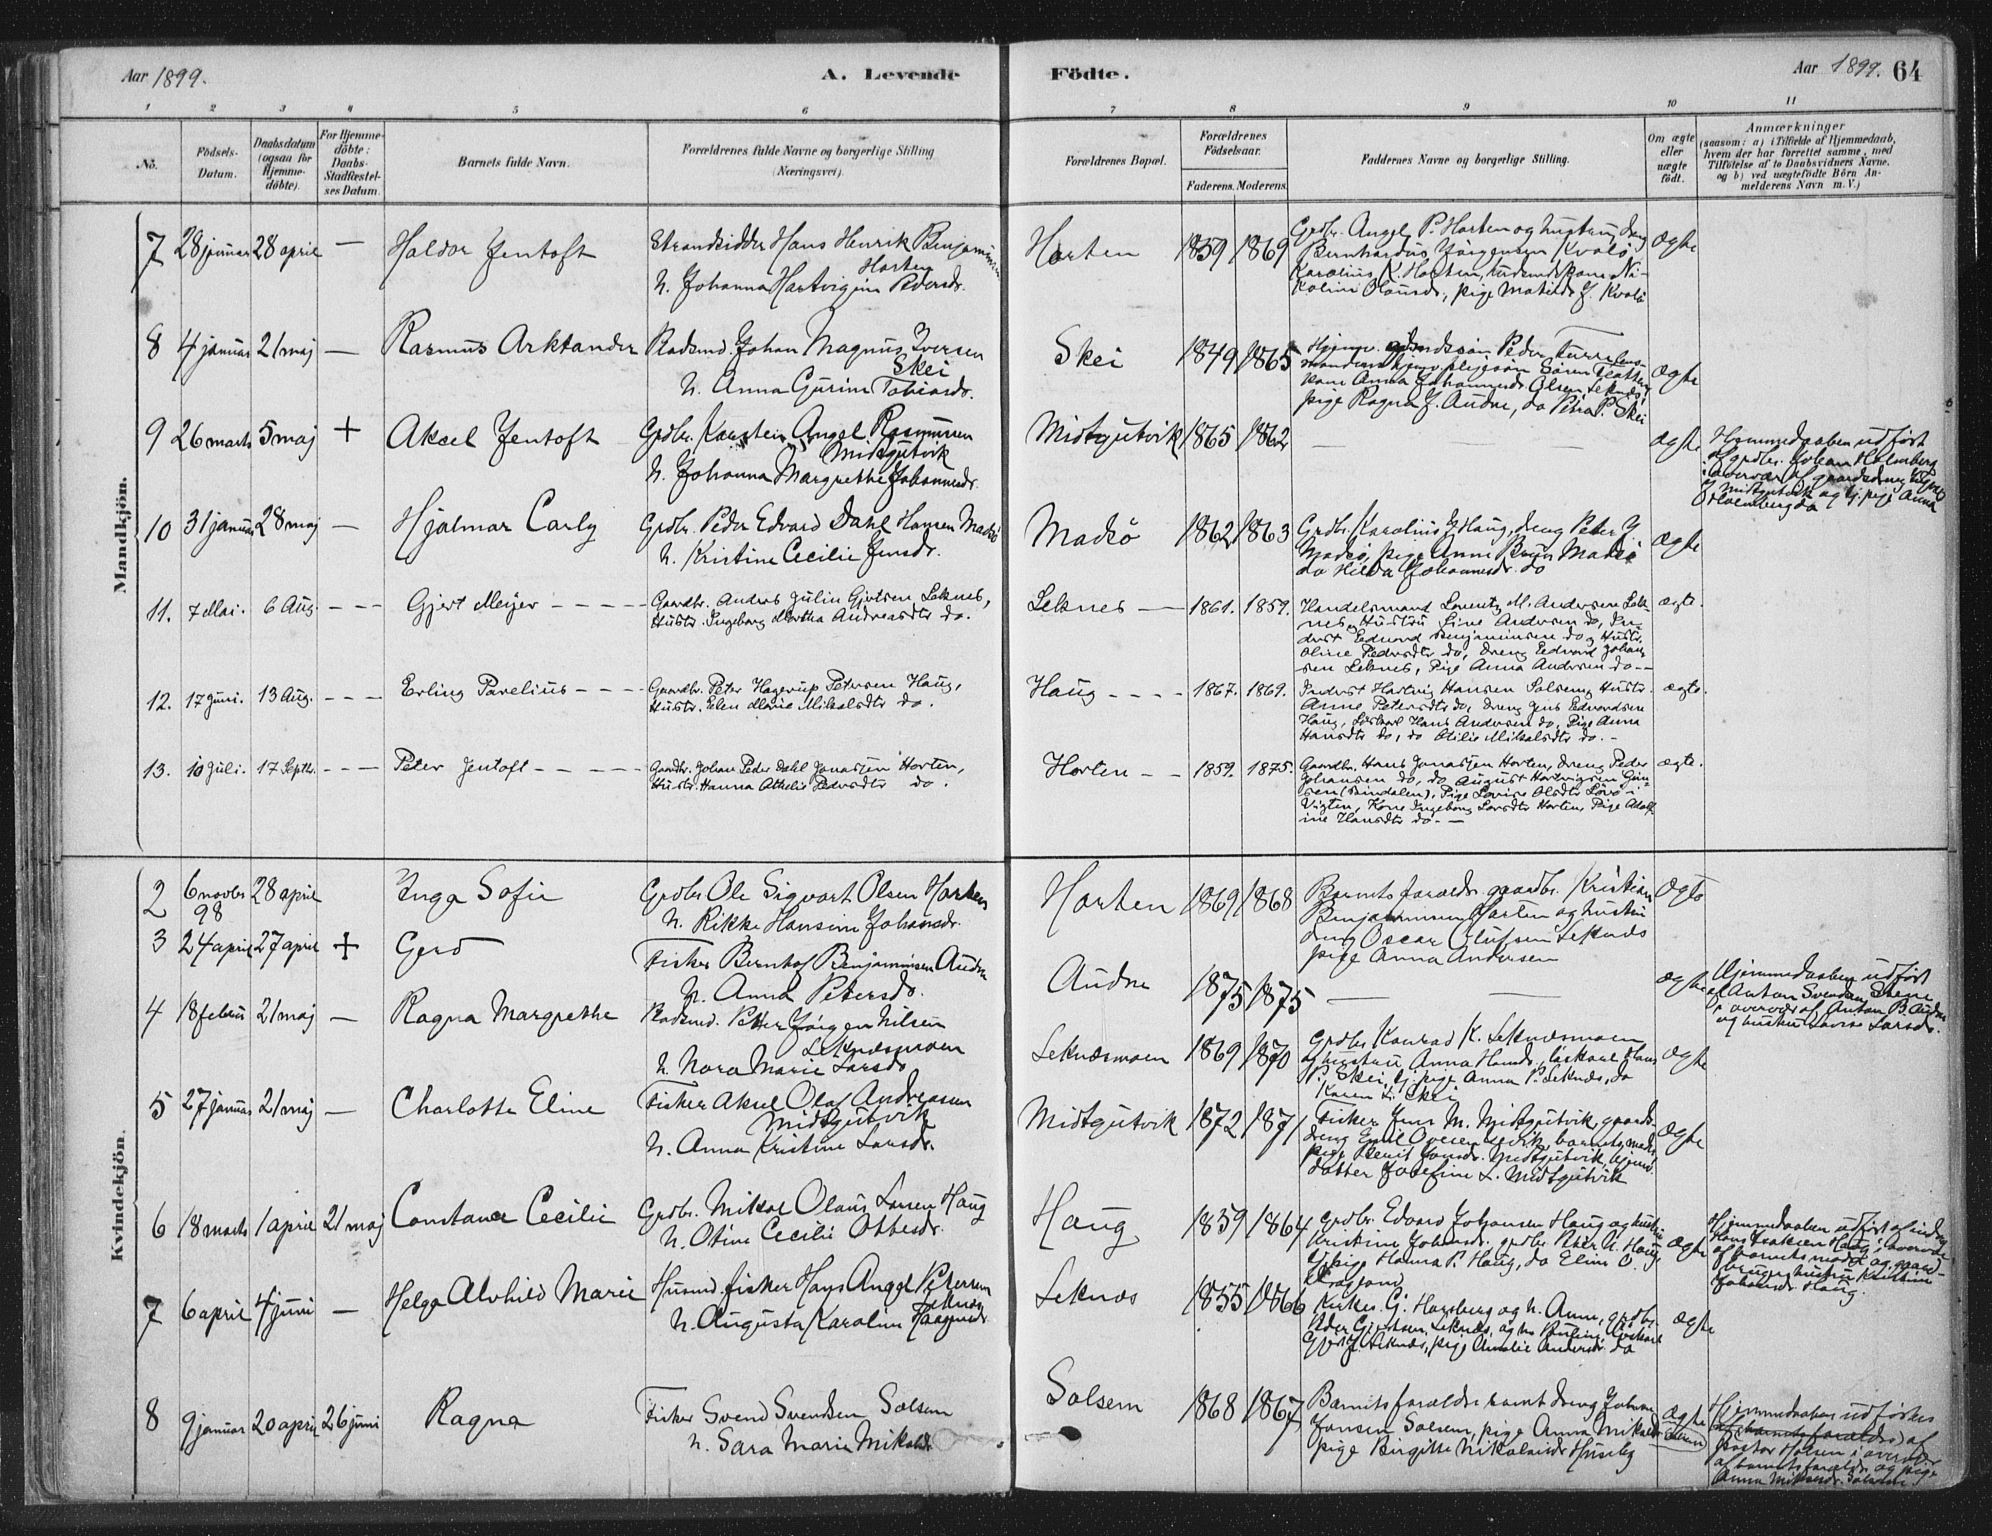 Aar 1899.
A. Levende
Födte.
Aar 1899. 64
1 2 3 4 5 6 7 8 9 10 11
Nö.
Födsels-Datum.
Daabsdatum (ogsaa for Hjemmedöbte).
For Hjemmedöbte: Daabs-Stadfæstelses Datum.
Barnets fulde Navn.
Forældrenes fulde Navne og borgerlige Stilling (Næringsvei).
Forældrenes Bopæl.
Forældrenes Födselsaar.
Faderens. Moderens.
Faddernes Navne og borgerlige Stilling.
Om ægte eller uægte födt.
Anmærkninger
(saasom: a) i Tilfælde af Hjemmedaab, hvem der har forrettet samme, med Tilföielse af to Daabsvidners Navne. og b) ved uægtefödte Börn Anmelderens Navn m. V.)
Mandkjön.
7 28 januar 28 april — Haldor Jentoft
Strandsidder Hans Henrik Benjaminsen
Horten
h. Johanna Hartvigine Pedersdr.
Horten 1859 1869
Grdbr. Angel P. Horten og hustru, dreng
Bernhardus Jörgensen Kvalö,
Karolius K. Horten,
Kvalö
ægte
8 4 januar 21 maj — Rasmus Arktander
Badsmd. Johan Magnus Iversen
Skei
h. Anna Gurine Tobiasdr.
Skei 1849 1865
kone Anna Johannesdr. Olsen Leknes,
pige Ragna J. Audne, do Petra P. Skei
ægte
9 26 marts 5 maj + Aksel Jentoft
Grdbr. Karsten Angel Rasmussen
Midtgutvik
h. Johanna Margrethe Johannesdr.
Midtgutvik 1865 1862 — — ægte
Hjemmedaaben udfört
af grdbr. Johan Holmberg
10 31 januar 28 maj — Hjalmar Carly
Grdbr. Peder Edvard Dahl Hansen Madsö
h. Kristine Cecilie Jensdr.
Madsö 1862 1863
Grdbr. Karolius J. Haug, dreng Peter J.
Madsö, pige Anna Madsö
do Hilda Johannesdr. do
ægte
11. 7 Mai. 6 Aug. - - - Gjert Meyer - - - -
Gaardbr. Anders Julin Gjertsen Leknes,
Hustr. Ingeborg Martha Andreasdtr do.
Leknes — 1861. 1859.
Handelsmand Lorentz M. Andersen Lek-
nes, Hustru Line Andersen do, In-
derst Edvard Benjaminsen do og Hustr.
Oline Pedersdtr do, Dreng Edvard Johan-
sen Leknes, Pige Anna Andersen do —
ægte.
12. 17 Juni. 13 Aug. - - - Erling Pavelius - - - -
Gaardbr. Peter Hagerup Petersen Haug,
Hustr. Elen Marie Mikalsdtr do.
Haug - - - - 1867. 1869.
Inderst Hartvig Hansen Solsem, Hustr.
Anne Petersdtr do, Dreng Jens Edvardsen
Haug, Löskarl Hans Andersen do, Pige Anna
Hansdtr do, do Otilie Mikalsdtr do. -
ægte.
13. 10 Juli. 17 Septbr. - - - Peter Jentoft - - - -
Gaardbr. Johan Peder Dahl Jonassen Horten,
Hustr. Hanna Athelie Pedersdtr do.
Horten - - 1859. 1875.
Gaardbr. Hans Jonassen Horten, Dreng Peder
Johansen do, do August Hartvigsen
(Bindalen), Pige Lovise Olsdtr Lövö i
Vigten, Kone Ingeborg Larsdtr Horten, Pige Adolf-
ine Hansdtr do. —
ægte.
Kvindekjön.
2 6 novbr 98 28 april Inga Sofie
Grdbr. Ole Sigvart Olsen Horten
h. Rikke Hansine Johansdr.
Horten 1869 1868
Barnets forældr. gaardbr. Kristian
Benjaminsen Horten og hustru
dreng Oscar Olufsen Leknæs
pige Anna Andersen
Ægte
3 24 april 27 april + Gerd
Fisker Bernhof Benjaminsen Audne
h. Anna Petersdr.
Audne 1875 1875 — — ægte
Hjemmedaaben udfört
af Anton Svendsen Stene
i overvær af Anton B. Audne
og hustru Lovise Larsdr.
4 18 februar 21 maj — Ragna Margrethe
Badsmd. Petter Jörgen Nilsen
Leknæsmoen
h. Nora Marie Larsdr.
Leknæsmoen 1869 1870
Grdbr. Konrad K. Leknæsmoen
og hustru Anna Hansdr., löskarl Hans
P. Skei, tj. pige Anna P. Leknæs, do
Karen Skei
ægte
5 27 januar 21 maj — Charlotte Eline
Fisker Aksel Olaf Andreassen
Midtgutvik
h. Anna Kristine Larsdr.
Midtgutvik 1872 1871
Fisker Jens M. Midtgutvik, gaards-
dreng Emil
Midtgutvik
datter Josefine L. Midtgutvik
ægte
6 18 marts 1 april 21 maj Constance Cecilie
Grdbr. Mikal Olaus Larsen Haug
h. Otine Cecilie Ottesdr.
Haug 1839 1864
Grdbr. Edvard Johansen Haug og hustru
Kristine Johansdr. grdbr. Peter N. Haug,
pige Hanna P. Haug, do Eline O.
ægte
Hjemmedaaben udfört af inderst
Haug i overvær
af barnets moder og gaard-
bruger hustru Kristine
Johansdr. Haug.
7 6 april 4 juni — Helga Alvhild Marie
Husmd. fisker Hans Angel Petersen
Leknæs
h. Augusta Karoline
Leknæs 1855 1866
Kirkes. G. Horsberg og h. Anne, grdbr.
Peder Gjertsen Leknæs,
Leknæs, pige Amalie Andersdr. do
ægte
8 9 januar 20 april 26 juni Ragna
Fisker Svend Svendsen Solsem
h. Sara Marie Mikalsdr.
Solsem 1868 1867
Barnets forældre samt dreng Johan
Jonsen Solsem, pige Anna Mikalsdr.
pige Birgitte Nikolaisdr. Huseby
ægte
Hjemmedaaben udförtes
af
pastor Holsen i overvær
af barnets forældre og pige
Anna Mikalsdr. Solsem